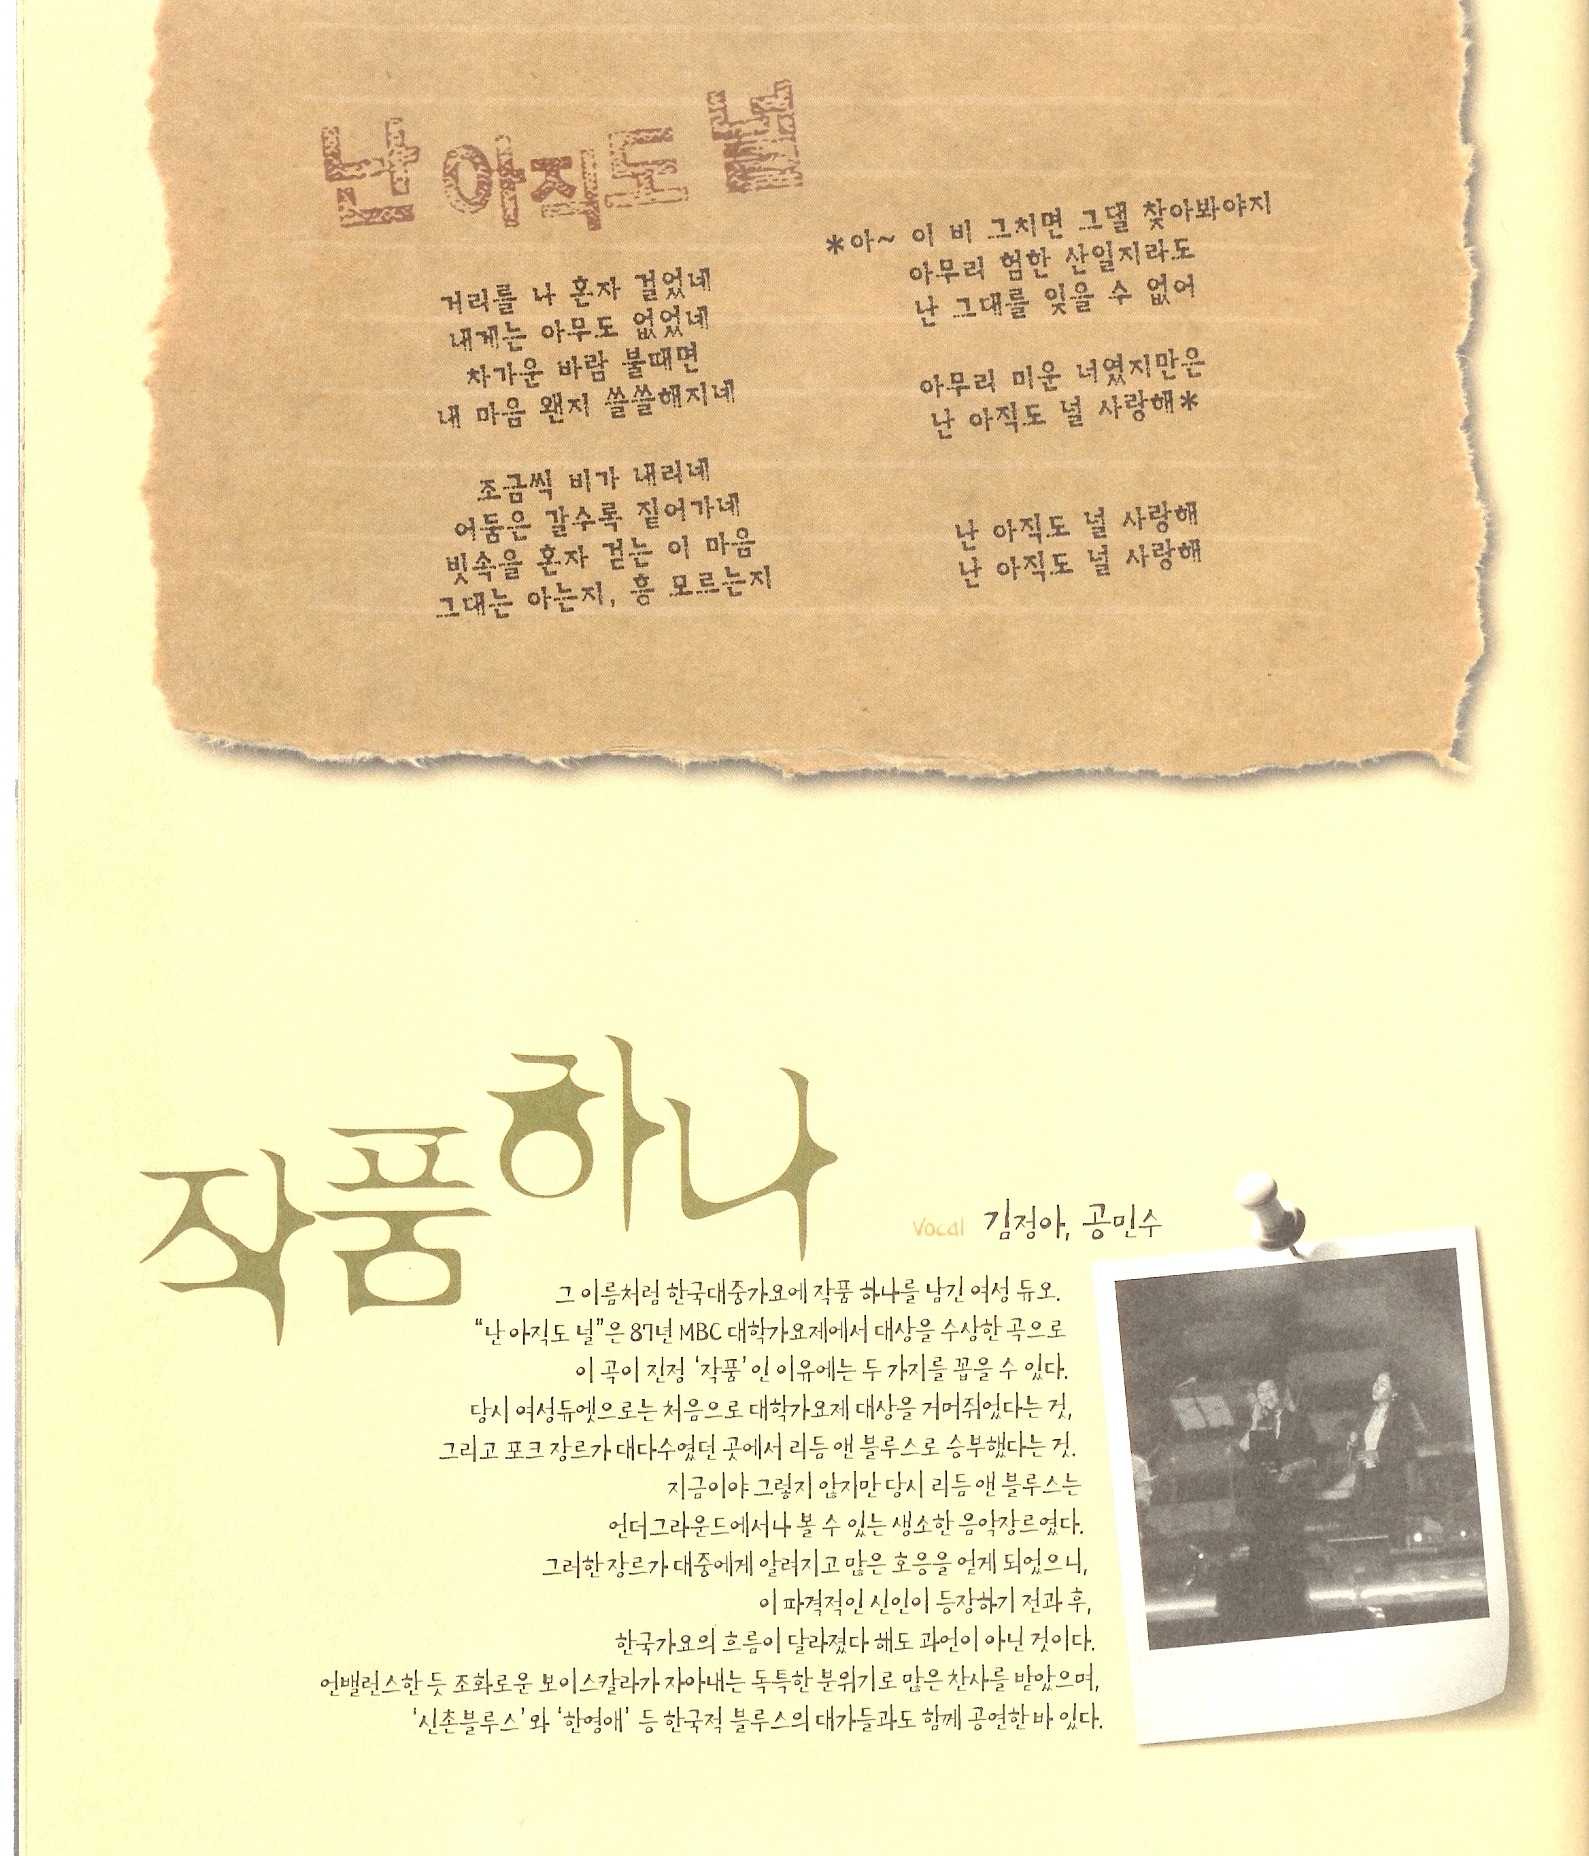 난 아직도 널
거리를 나 혼자 걸었네
내게는 아무도 없었네
차가운 바람 불때면
내 마음 왠지 쓸쓸해지네
조금씩 비가 내리네
어둠은 갈수록 짙어가네
빗속을 혼자 걷는 이 마음
그대는 아는지, 흥 모르는지
*아~ 이 비 그치면 그댈 찾아봐야지
아무리 험한 산일지라도
난 그대를 잊을 수 없어
아무리 미운 너였지만은
난 아직도 널 사랑해*
난 아직도 널 사랑해
난 아직도 널 사랑해
작품하나
Vocal 김정아, 공민수
그 이름처럼 한국대중가요에 작품 하나를 남긴 여성 듀오.
“난 아직도 널”은 87년 MBC 대학가요제에서 대상을 수상한 곡으로
이 곡이 진정 ‘작품’인 이유에는 두 가지를 꼽을 수 있다.
당시 여성듀엣으로는 처음으로 대학가요제 대상을 거머쥐었다는 것,
그리고 포크 장르가 대다수였던 곳에서 리듬 앤 블루스로 승부했다는 것.
지금이야 그렇지 않지만 당시 리듬 앤 블루스는
언더그라운드에서나 볼 수 있는 생소한 음악장르였다.
그러한 장르가 대중에게 알려지고 많은 호응을 얻게 되었으니,
이 파격적인 신인이 등장하기 전과 후,
한국가요의 흐름이 달라졌다 해도 과언이 아닌 것이다.
언밸런스한 듯 조화로운 보이스칼라가 자아내는 독특한 분위기로 많은 찬사를 받았으며,
‘신촌블루스’와 ‘한영애’ 등 한국적 블루스의 대가들과도 함께 공연한 바 있다.